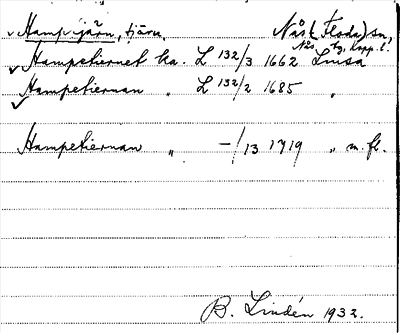 Hampetjärn, tjärn.  Nås (Floda) sn,
Nås tg, Kopp. l.
Hampetiernet ka. L 132/3 1662 Limsa
Hampetiernan " L 132/2 1685 "
Hampetiernan " –/13 1719 " m. fl.
B. Lindén 1932.